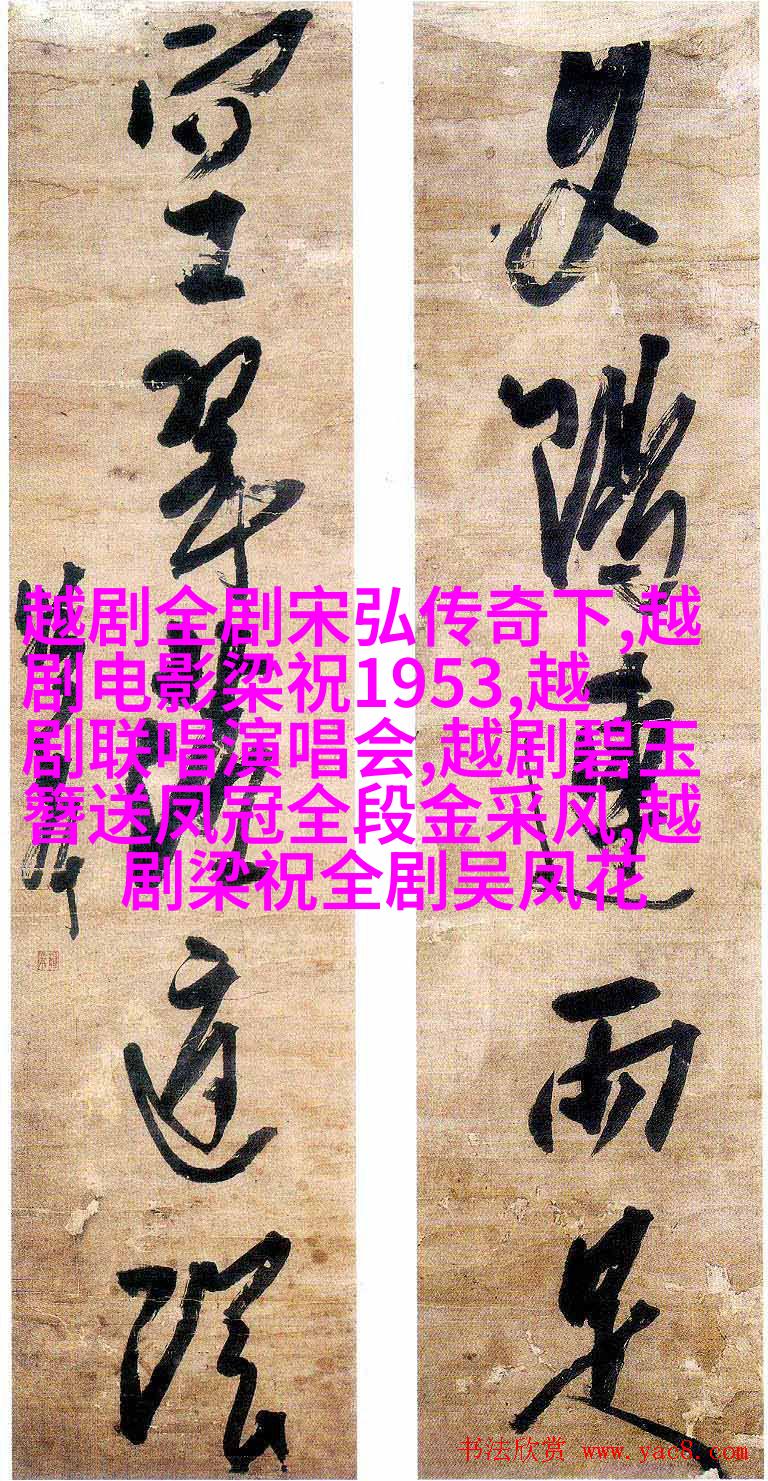 夕陽連雨足
空翠落庭陰
越剧全剧宋弘传奇下,越
剧电影梁祝1953,越
剧联唱演唱会,越剧碧玉
簪送凤冠全段金采风,越
剧梁祝全剧吴凤花
书法欣赏 www.yac8.com